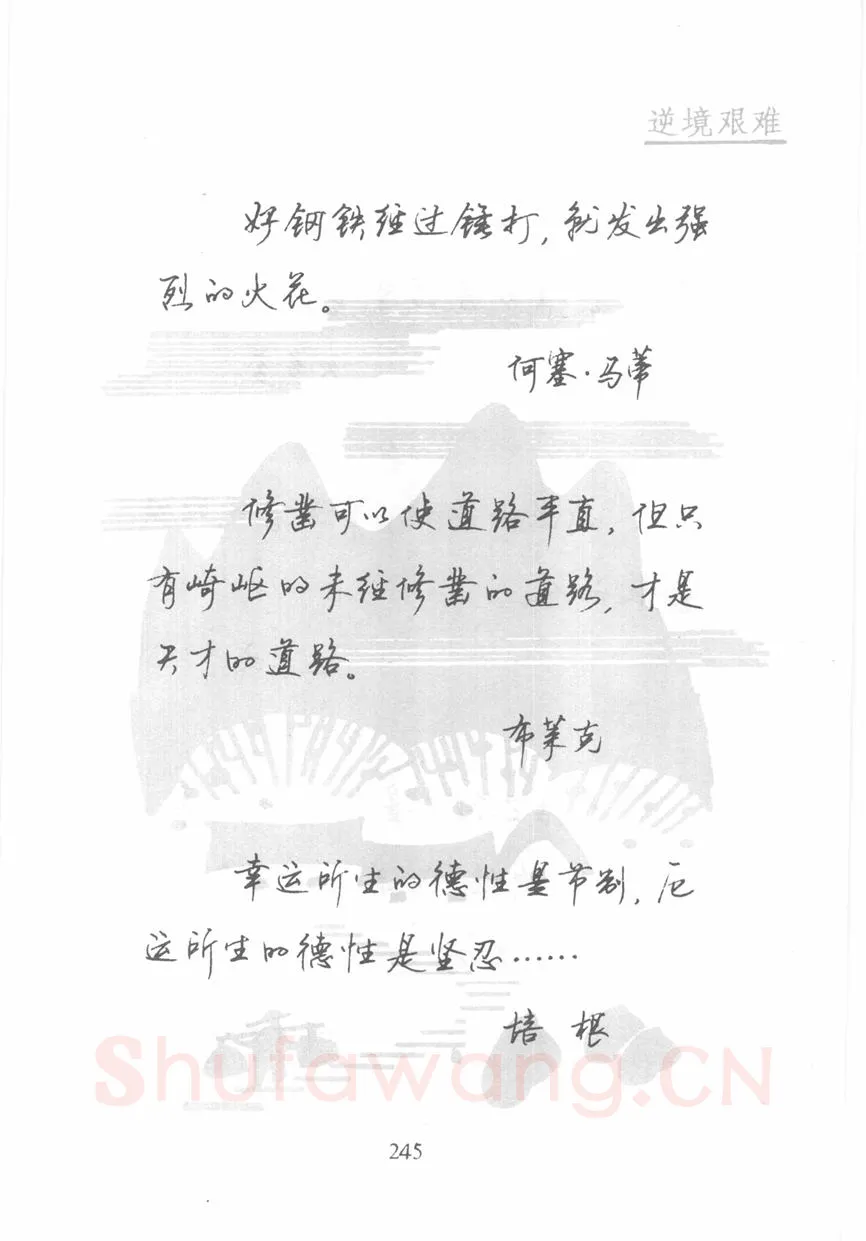 逆境艰难
好钢铁经过锤打，就发出强
烈的火花。
何塞·马蒂
修凿可以使道路平直，但只
有崎岖的未经修凿的道路，才是
天才的道路。
布莱克
幸运所生的德性是节制，厄
运所生的德性是坚忍……
培根
Shufawang.CN
245